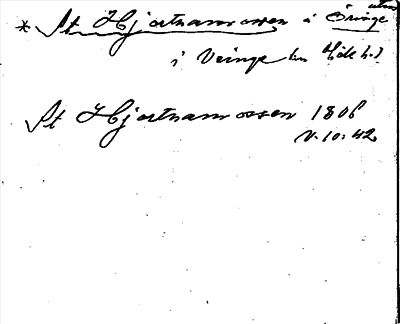 * St Hjortnamossen i Öringe
i Veinge sn Hök hd
St Hjortnamossen 1806
V. 10: 42.